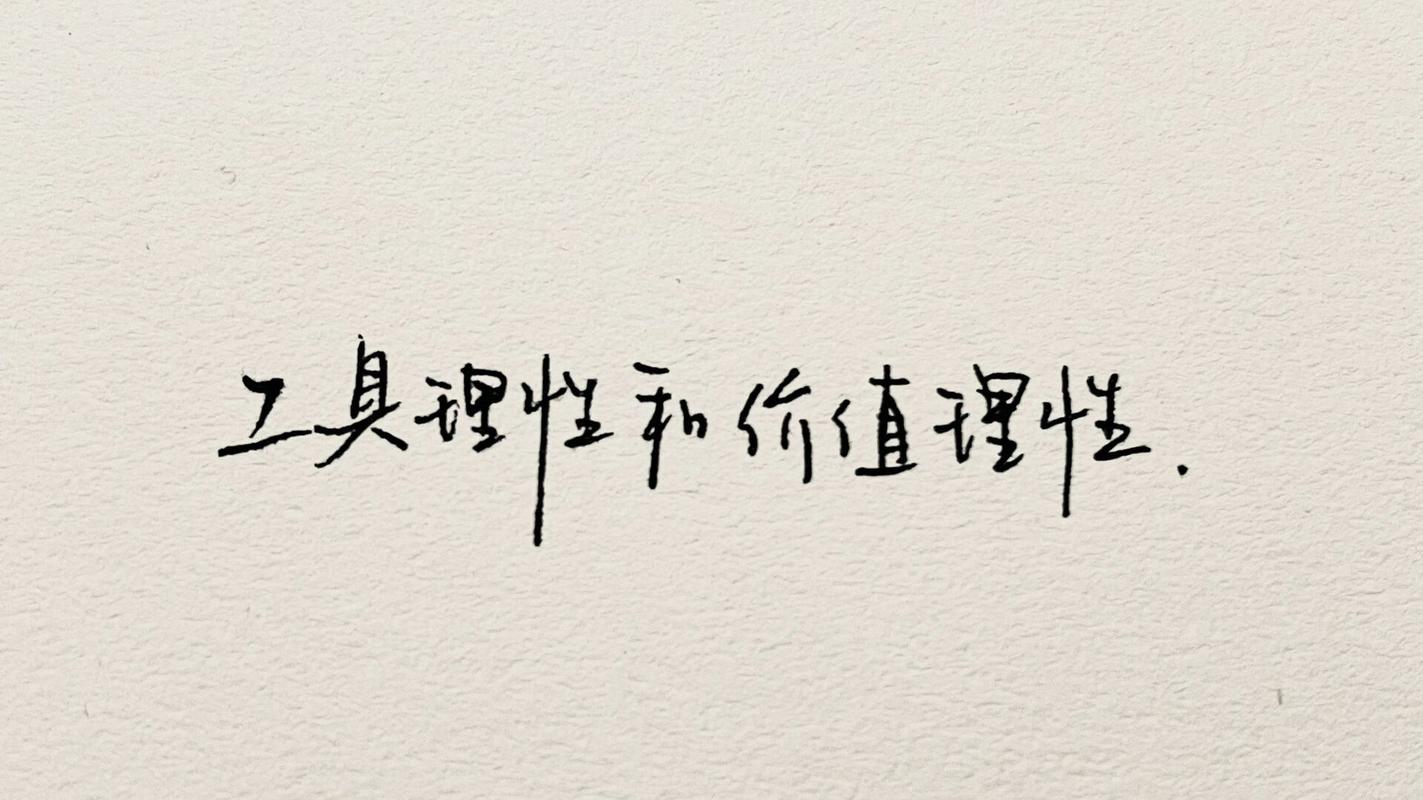 工具理性和价值理性.